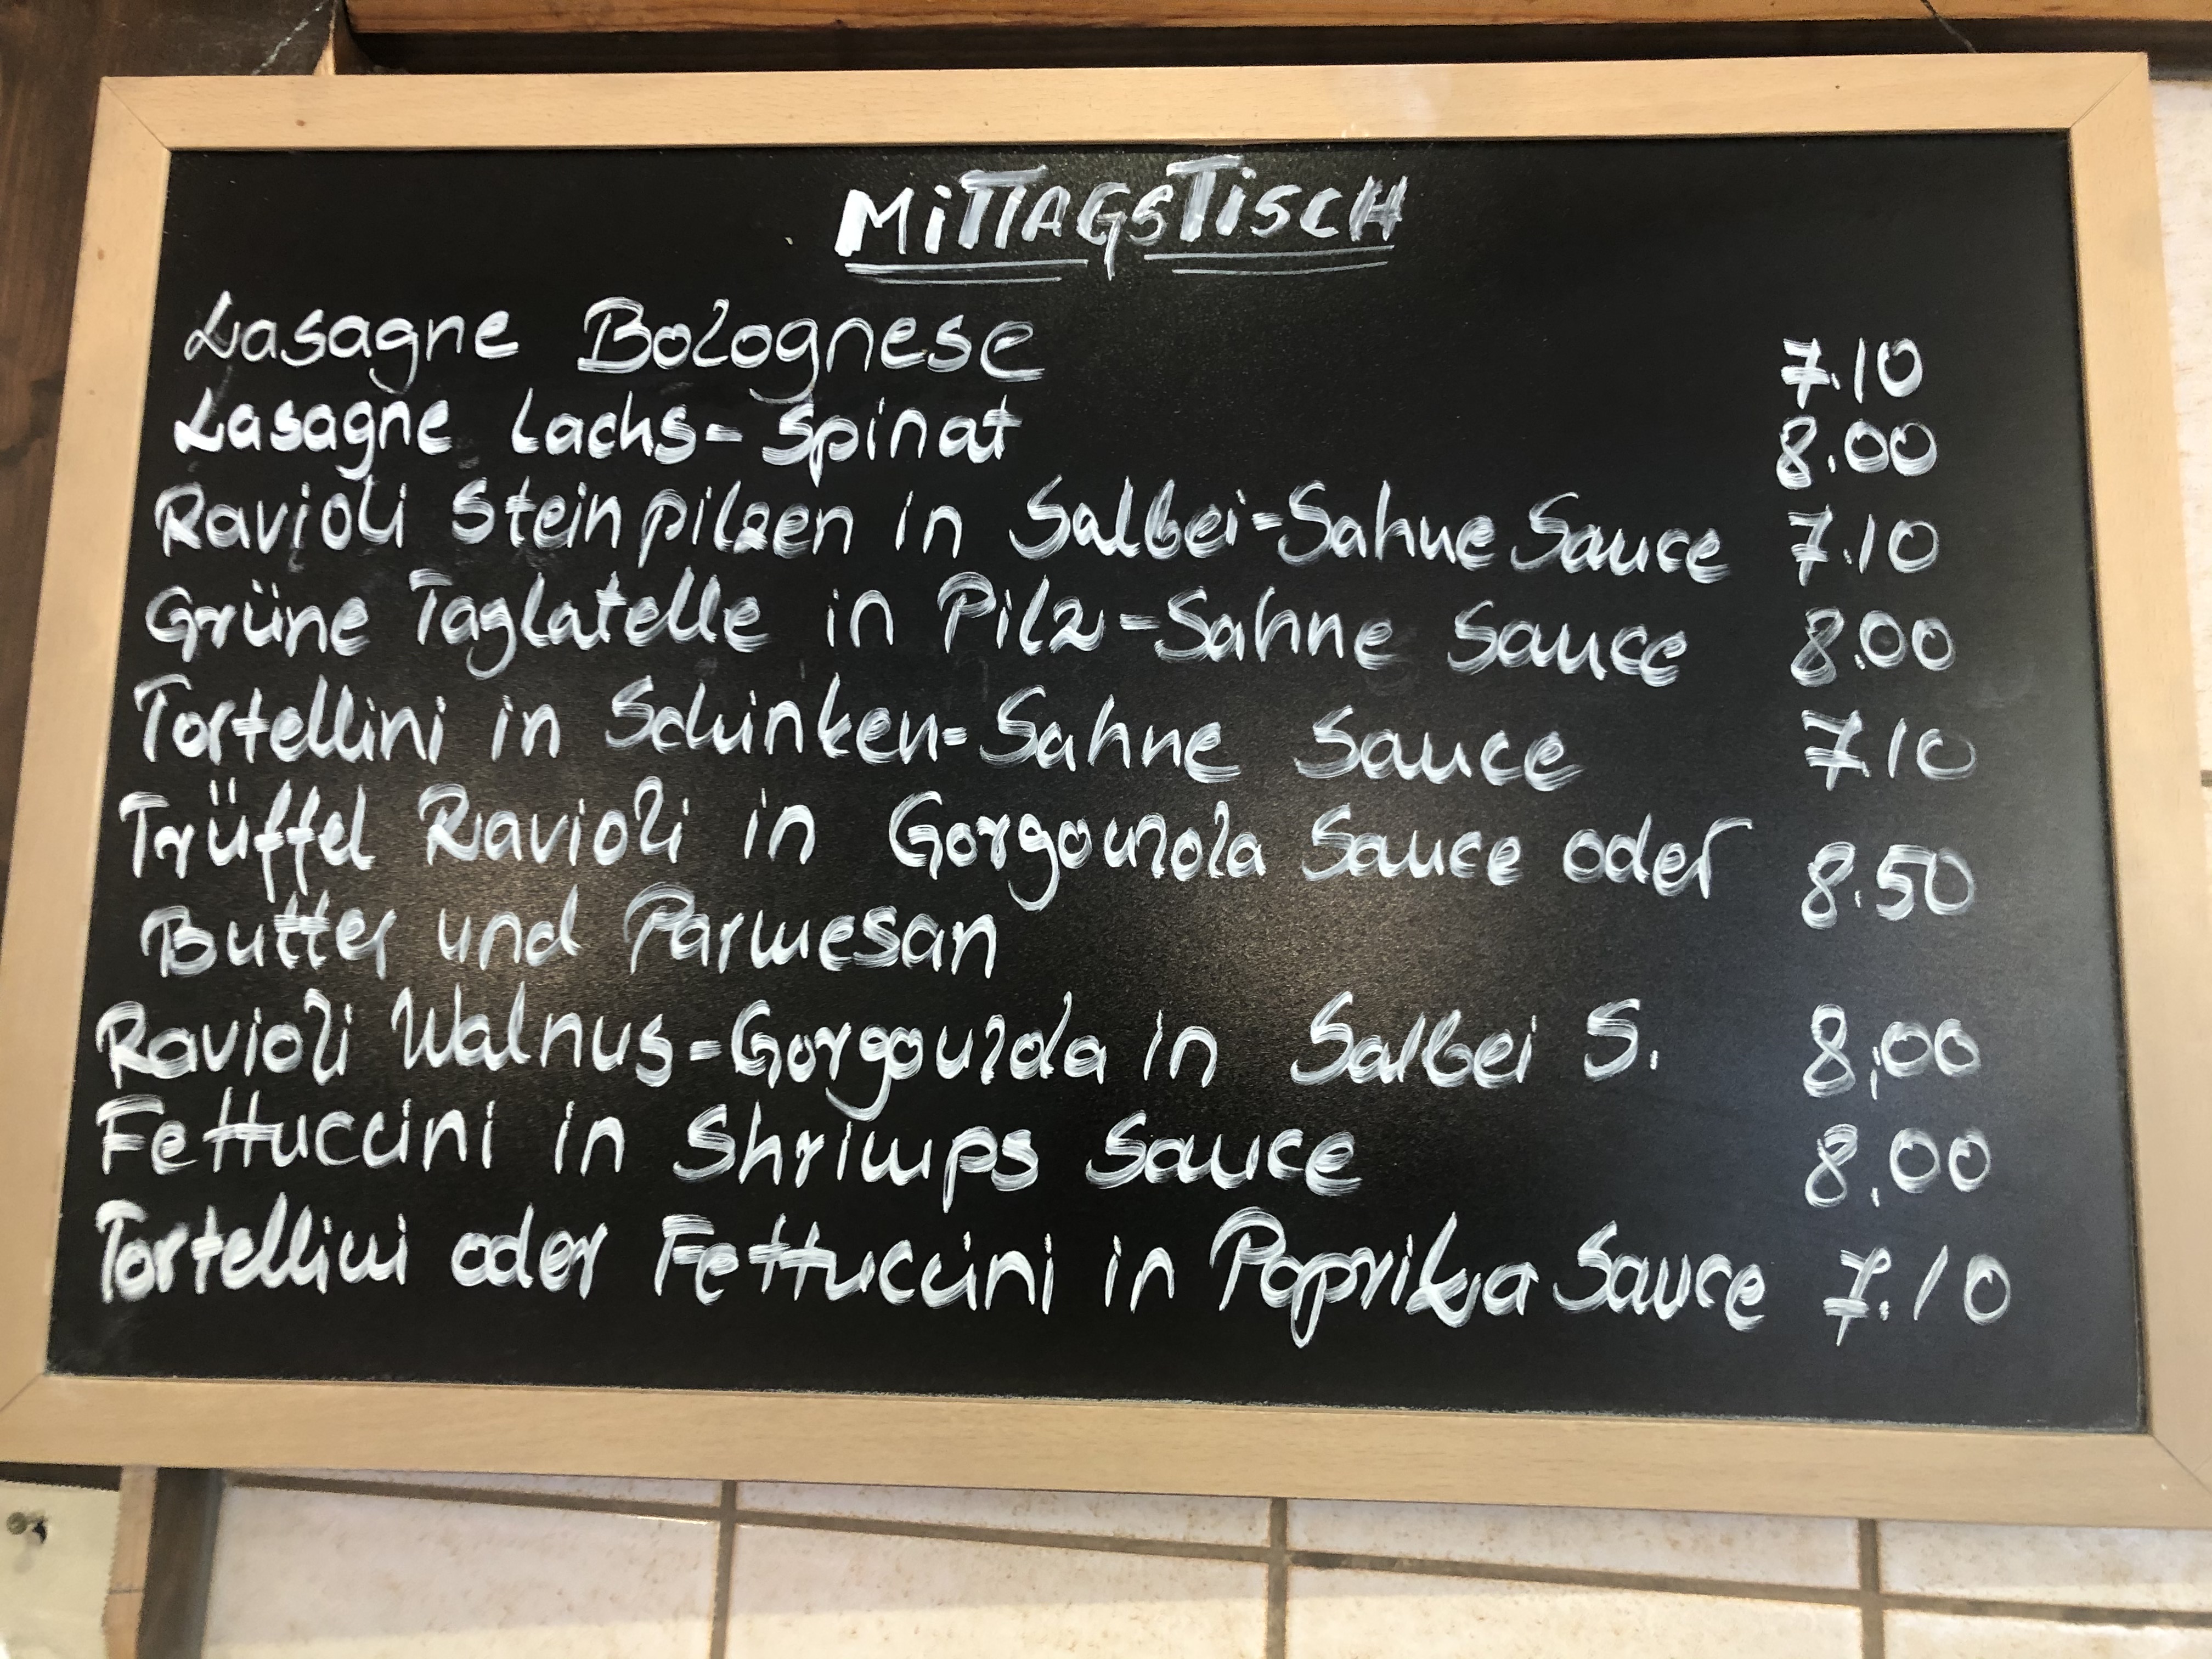 MiTTAGSTiSCH
Lasagne Bolognese 7.10
Lasagne Lachs-Spinat 8.00
Ravioli Steinpilzen in Salbei-Sahne Sauce 7.10
Grüne Taglatelle in Pilz-Sahne Sauce 8.00
Tortellini in Schinken-Sahne Sauce 7.10
Trüffel Ravioli in Gorgonzola Sauce oder 8.50
Butter und Parmesan
Ravioli Walnus-Gorgonzola in Salbei S. 8,00
Fettuccini in Shrimps Sauce 8,00
Tortellini oder Fettuccini in Paprika Sauce 7.10